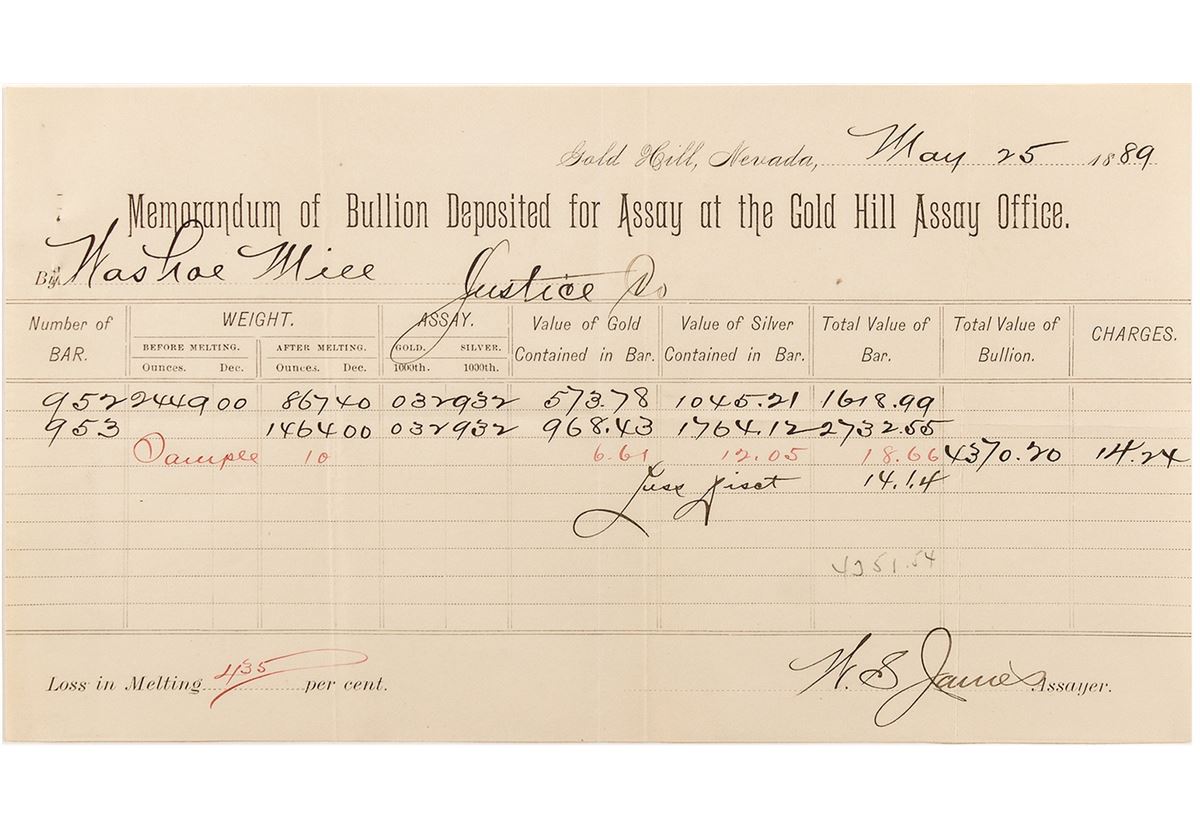 Gold Hill, Nevada, May 25 1889
Memorandum of Bullion Deposited for Assay at the Gold Hill Assay Office.
By Washoe Mill Justice Co
Number of BAR. WEIGHT. ASSAY. Value of Gold Contained in Bar. Value of Silver Contained in Bar. Total Value of Bar. Total Value of Bullion. CHARGES.
BEFORE MELTING. AFTER MELTING. GOLD. SILVER.
Ounces. Dec. Ounces. Dec. 1000th. 1000th.
952 2449 00 867 40 032 932 573.78 1045.21 1618.99
953 1464 00 032 932 968.43 1764.12 2732.55
Sample 10 6.61 12.05 18.66 4370.20 14.24
14.14
4351.54
Loss in Melting 435 per cent.
W. S James Assayer.